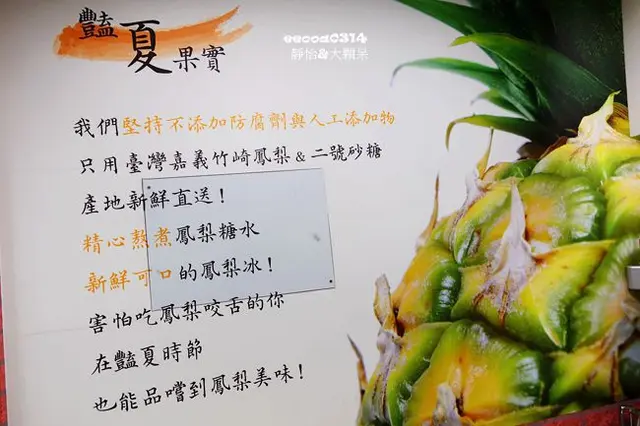 豔夏果實
eecod0314
靜怡&大顆呆
我們堅持不添加防腐劑與人工添加物
只用臺灣嘉義竹崎鳳梨&二號砂糖
產地新鮮直送!
精心熬煮鳳梨糖水
新鮮可口的鳳梨冰!
害怕吃鳳梨咬舌的你
在豔夏時節
也能品嚐到鳳梨美味!